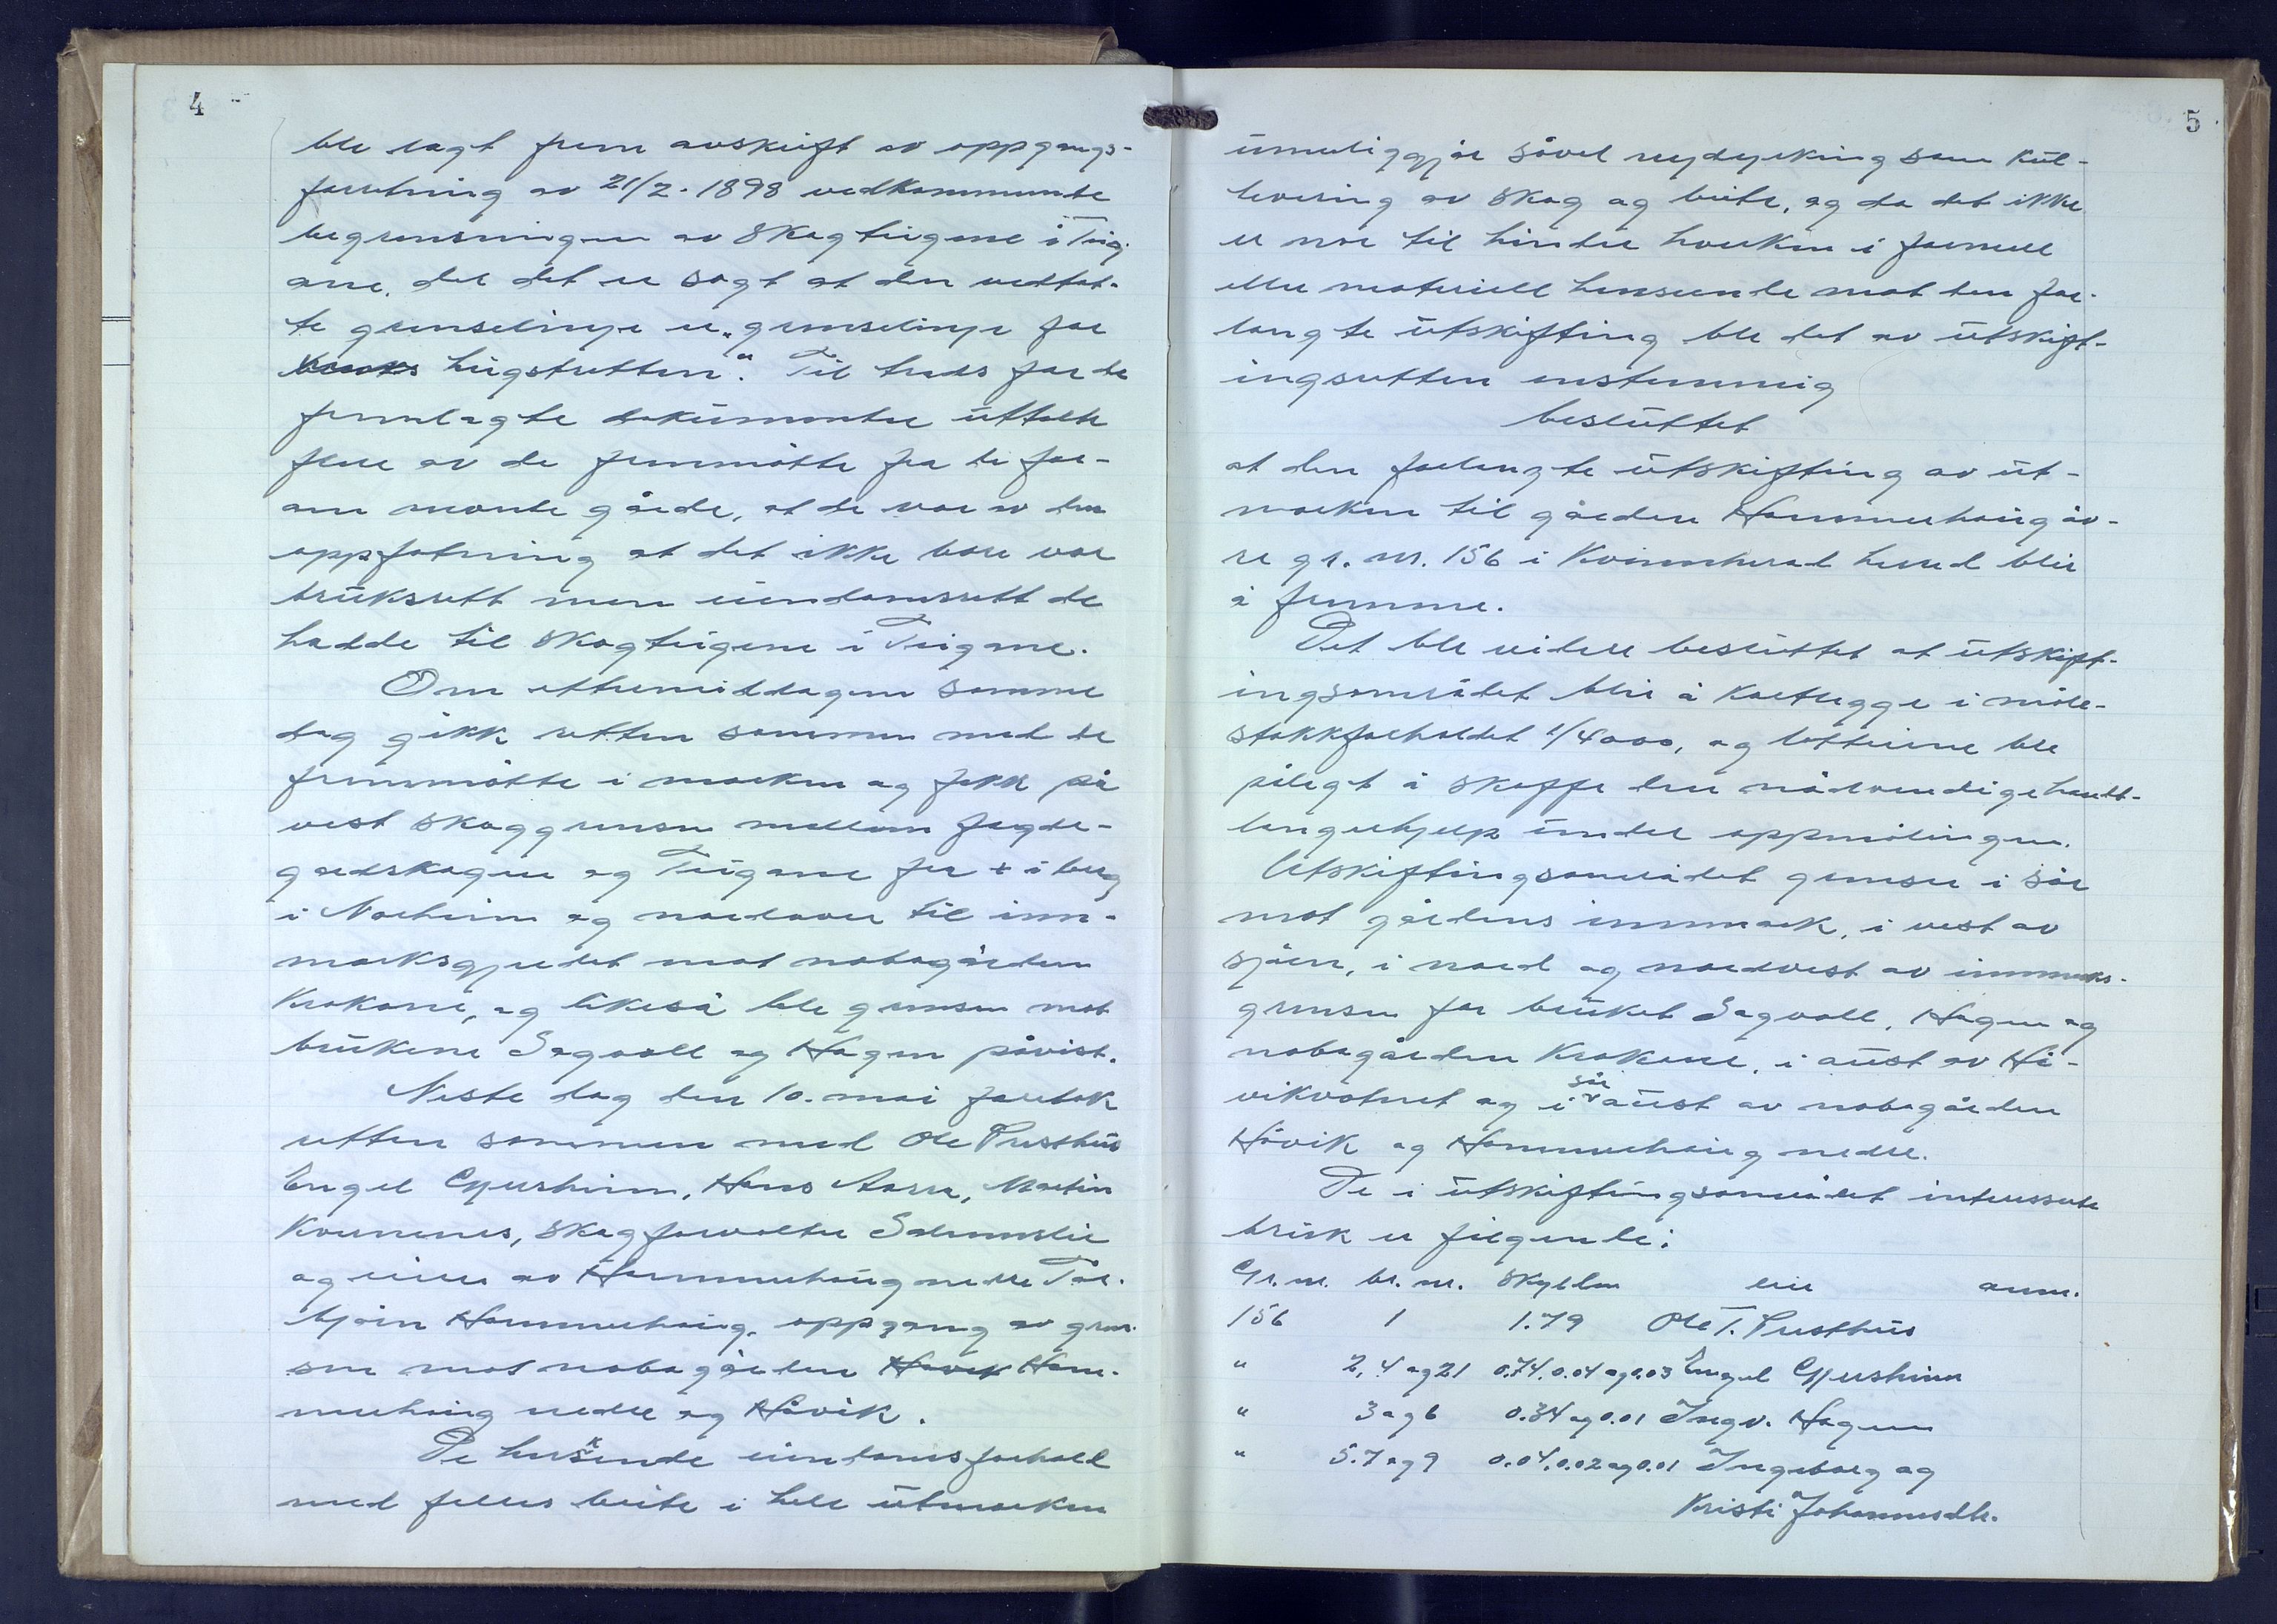 4
ble lagt frem avskrift av oppgangs-
forretning av 21/2. 1898 vedkommende
begrensningen av Skogteigene i Teig-
ane, der det er sagt at den vedtat-
te grenselinje er „grenselinje for
hugstretten". Til trods for de
fremlagte dokumenter uttalte
flere av de fremmøtte fra de for-
an nevnte gårde, at de var av den
oppfatning at det ikke bare var
bruksrett men eiendomsrett de
hadde til skogteigene i Teigane.
Om ettermiddagen samme
dag gikk retten sammen med de
fremmøtte i marken og fekk på
vist skoggrensen mellom Fegde-
gardskogen og Teigane fra + i berg
i Norheim og nordover til inn-
marksgjerdet mot nabogården
Krokane, og likeså ble grensen mot
brukene Sagvoll og Hagen påvist.
Neste dag den 10. mai foretok
retten sammen med Ole Presthus
Engel Gjersheim, Hans Aarra, Martin
Kvernenes, Skogforvalter Salmunslie
og eier av Hammerhaug nedre Tor-
bjørn Hammerhaug, oppgang av gren-
sen mot nabogården Havik Ham-
merhaug nedre og Håvik.
De herskende eiendomsforhold
med felles beite i hele utmarken
5
umuliggjør såvel nydyrking som kul-
tivering av skog og beite, og da det ikke
er noe til hinder hverken i formell
eller materiell henseende mot den for-
langte utskifting ble det av utskift-
ingsretten enstemmig
besluttet
at den forlangte utskifting av ut-
marken til gården Hammerhaug øv-
re gr. nr. 156 i Kvinnherad herred blir
å fremme.
Det ble videre besluttet at utskift-
ingsområdet blir å kartlegge i måle-
stokkforholdet 1/4000, og lotteierne ble
pålegt å skaffe den nødvendige hand-
langerhjelp under oppmålingen.
Utskiftingsområdet grenser i sør
mot gårdens innmark, i vest av
sjøen, i nord og nordvest av innmarks-
grensen for bruket Sagvoll, Hagen og
nabogården Krokane, i aust av Hå-
vikvatnet og i søraust av nabogården
Håvik og Hammerhaug nedre.
De i utskiftingsområdet interesserte
bruk er følgende:
Gr. nr. br. nr. Skylden eier anm.
156 1 1.79 Ole T. Presthus
" 2, 4 og 21 0.74, 0.04 og 0.03 Engel Gjersheim
" 3 og 6 0.34 og 0.01 Ingv. Hagen
" 5.7 og 9 0.04, 0.02 og 0.01 Ingeborg og
Kristi Johannesdtr.